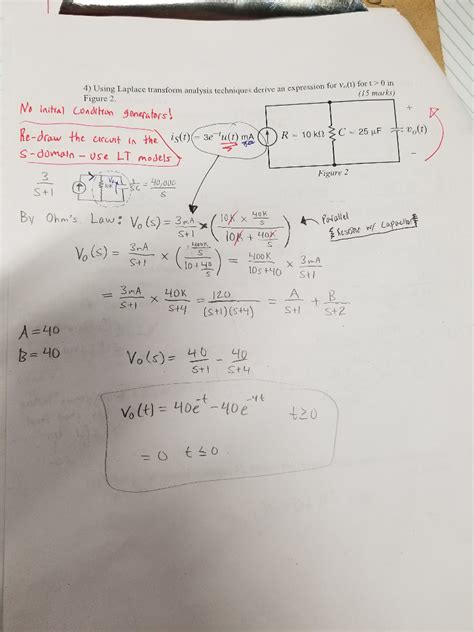 4) Using Laplace transform analysis techniques derive an expression for vₒ(t) for t > 0 in
Figure 2.
(15 marks)
No Initial Condition generators!
Re-draw the circuit in the
S-domain - use LT models
iS(t) = 3e⁻ᵗu(t) mA
R = 10 kΩ
C = 25 μF
+
vₒ(t)
−
Figure 2
3/(s+1)
1/(sC) = 40,000/s
By Ohm's Law: Vₒ(s) = 3mA/(s+1) × ((10K × 40K/s)/(10K + 40K/s))
Parallel
Resistor w/ Capacitor
Vₒ(s) = 3mA/(s+1) × ((400K/s)/(10 + 40/s)) = 400K/(10s+40) × 3mA/(s+1)
= 3mA/(s+1) × 40K/(s+4) = 120/((s+1)(s+4)) = A/(s+1) + B/(s+2)
A = 40
B = 40
Vₒ(s) = 40/(s+1) - 40/(s+4)
Vₒ(t) = 40e⁻ᵗ - 40e⁻⁴ᵗ t≥0
= 0 t≤0